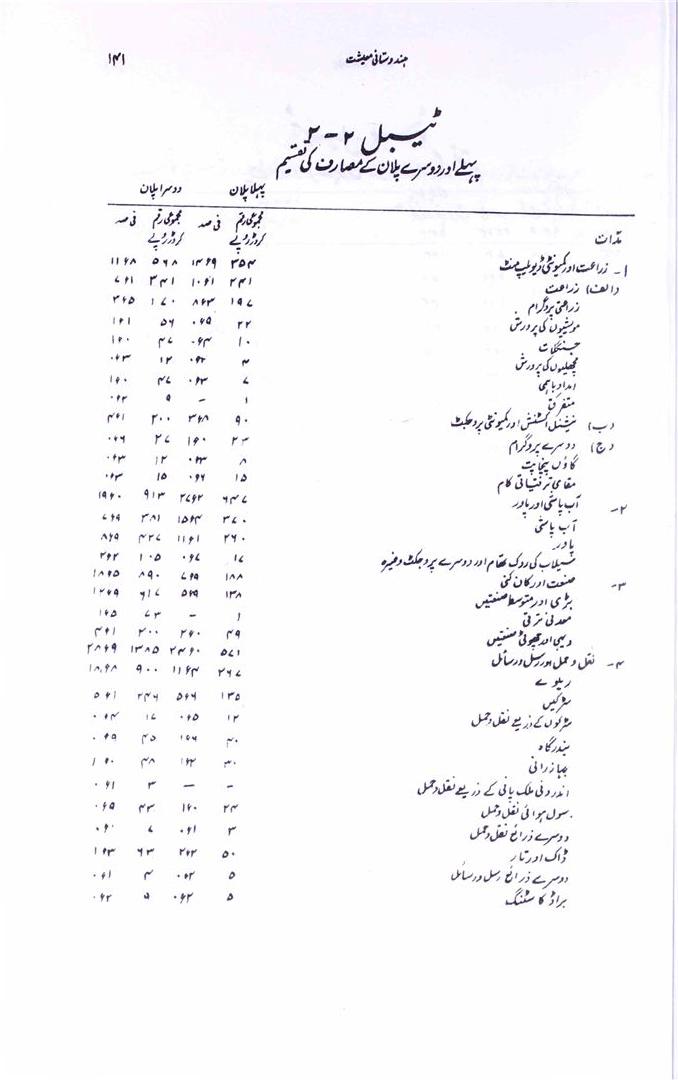 ہندوستانی معیشت ۱۴۱
ٹیبل ۲ – ۲
پہلے اور دوسرے پلان کے مصارف کی تقسیم
پہلا پلان دوسرا پلان
مدّات مجموعی رقم کروڑ روپے فی صد مجموعی رقم کروڑ روپے فی صد
۱- زراعت اور کمیونٹی ڈیولپمنٹ ۳۵۴ ۱۴ء۹ ۵۶۸ ۱۱ء۸
(الف) زراعت ۲۴۱ ۱۰ء۱ ۳۴۱ ۷ء۱
زراعتی پروگرام ۱۹۷ ۸ء۳ ۱۷۰ ۳ء۵
مویشیوں کی پرورش ۲۲ ۰ء۹ ۵۶ ۱ء۱
جنگلات ۱۰ ۰ء۴ ۴۷ ۱ء۰
مچھلیوں کی پرورش ۴ ۰ء۲ ۱۲ ۰ء۳
امداد باہمی ۷ ۰ء۳ ۴۷ ۱ء۰
متفرق ۱ – ۹ ۰ء۲
(ب) نیشنل اکسٹنشن اور کمیونٹی پروجکٹ ۹۰ ۳ء۸ ۲۰۰ ۴ء۱
(ج) دوسرے پروگرام ۲۳ ۱ء۰ ۲۷ ۰ء۶
گاؤں پنچایت ۸ ۰ء۳ ۱۲ ۰ء۳
مقامی ترقیاتی کام ۱۵ ۰ء۶ ۱۵ ۰ء۳
۲- آب پاشی اور پاور ۶۴۷ ۲۷ء۲ ۹۱۳ ۱۹ء۰
آب پاشی ۳۷۰ ۱۵ء۴ ۳۸۱ ۷ء۹
پاور ۲۶۰ ۱۱ء۱ ۴۲۷ ۸ء۹
سیلاب کی روک تھام اور دوسرے پروجکٹ وغیرہ ۱۷ ۰ء۷ ۱۰۵ ۲ء۲
۳- صنعت اور کان کنی ۱۸۸ ۷ء۹ ۸۹۰ ۱۸ء۵
بڑی اور متوسط صنعتیں ۱۳۸ ۵ء۹ ۶۱۷ ۱۲ء۹
معدنی ترقی ۱ – ۷۳ ۱ء۵
دیہی اور چھوٹی صنعتیں ۴۹ ۲ء۰ ۲۰۰ ۴ء۱
۴- نقل و حمل اور رسل و رسائل ۵۷۱ ۲۴ء۰ ۱۳۸۵ ۲۸ء۹
ریلوے ۲۶۷ ۱۱ء۴ ۹۰۰ ۱۸ء۸
سڑکیں ۱۳۵ ۵ء۶ ۲۴۶ ۵ء۱
سڑکوں کے ذریعے نقل و حمل ۱۲ ۰ء۵ ۱۷ ۰ء۴
بندرگاہ ۴۰ ۱ء۶ ۴۵ ۰ء۹
جہاز رانی ۳۰ ۱ء۲ ۴۸ ۱ء۰
اندرونی ملک پانی کے ذریعے نقل و حمل – – ۳ ۰ء۱
سول ہوائی نقل و حمل ۲۴ ۱ء۰ ۴۳ ۰ء۹
دوسرے ذرائع نقل و حمل ۳ ۰ء۱ ۷
ڈاک اور تار ۵۰ ۲ء۲ ۶۳ ۱ء۳
دوسرے ذرائع رسل و رسائل ۵ ۰ء۲ ۴ ۰ء۱
براڈ کاسٹنگ ۵ ۰ء۲ ۹ ۰ء۲